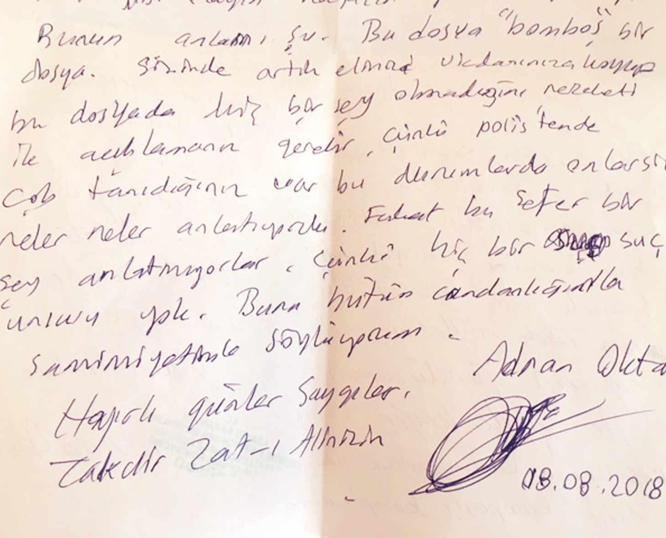 Bunun anlamı şu. Bu dosya "bomboş bir
dosya. Sizinde artık elinizi vicdanınıza koyup
bu dosyada hiç bir şey olmadığını nezaketi
ile açıklamanız gerekir. Çünkü polis'tende
Çok tanıdığınız var bu durumlarda onlarsı
neler neler anlatıyordu. Fakat bu sefer bir
şey anlatmıyorlar. Çünkü hiç bir suç
unsuru yok. Bunu bütün candanlığımla
Samimiyetimle söylüyorum.
Adnan Okta
Hayırlı günler Saygılar.
Takdir Zat-ı Alinizin
08.08.2018